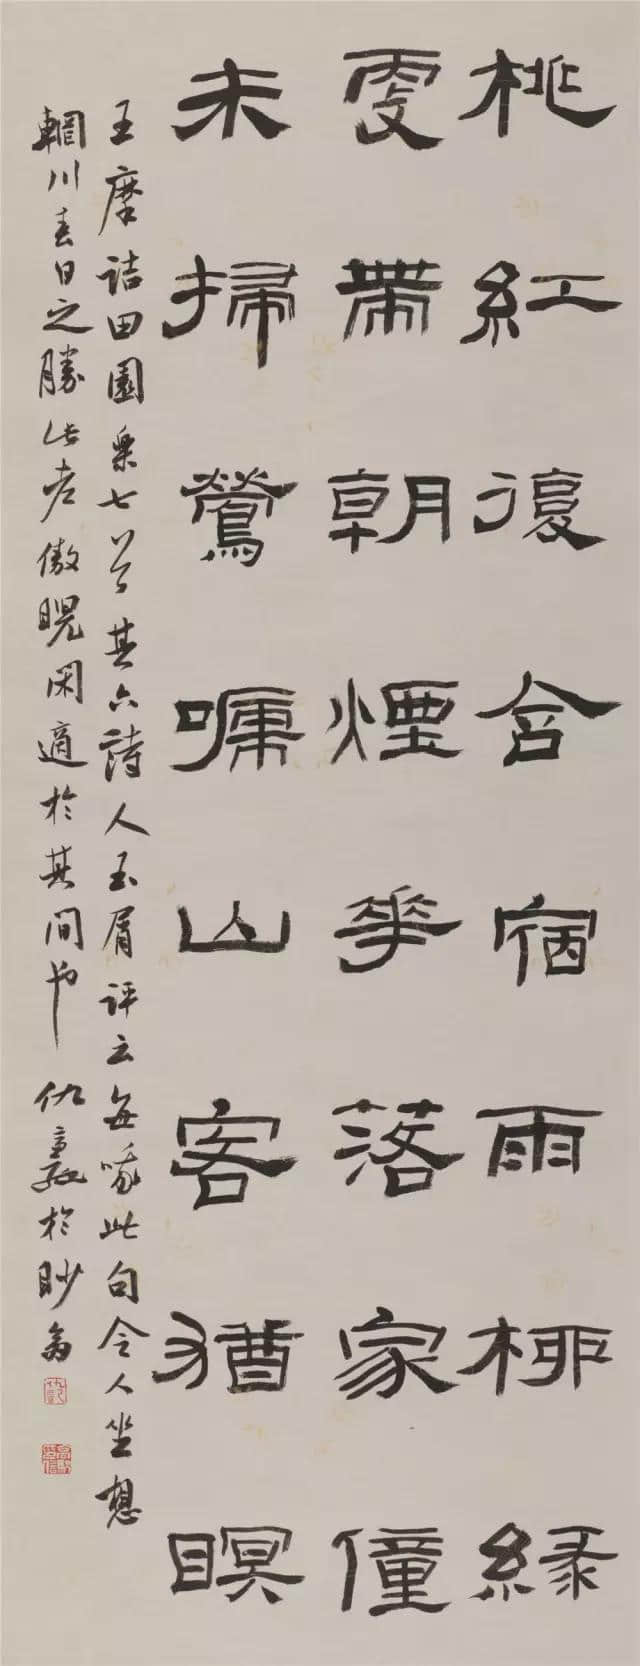 桃紅復含宿雨柳綠
更帶朝煙花落家僮
未掃鶯嗁山客猶瞑
王摩詰田園樂七首其六詩人玉屑評云每哦此句令人坐想
輞川春日之勝此老傲睨閑適於其間也 仇於眇